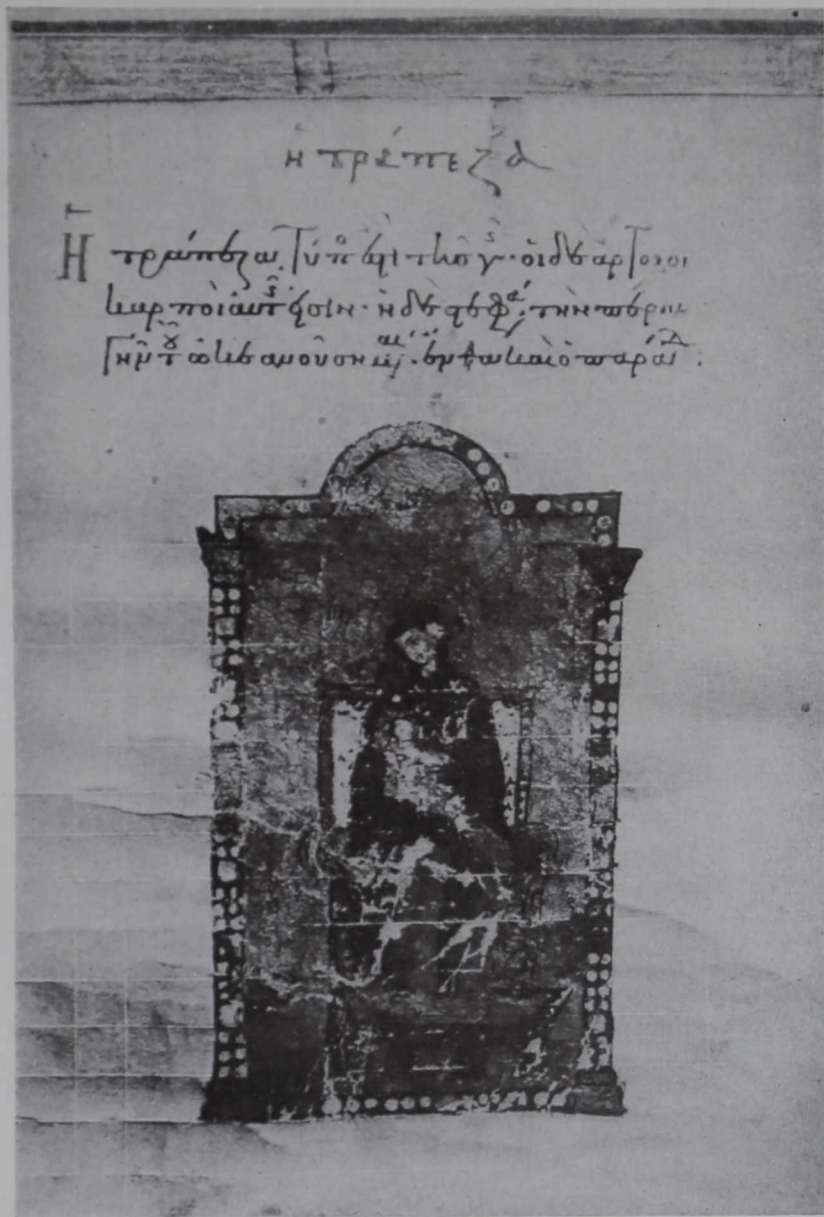 ἡ τράπεζα
Ἡ τράπεζα τύπος ἐστὶ τῆς γῆς· οἱ δὲ ἄρτοι οἱ
καρποὶ αὐτῆς εἰσιν· ἡ δὲ στεφά τὴν πέραν
γῆν τοῦ ὠκεανοῦ σημαι· ἔνθα καὶ ὁ παράδ :